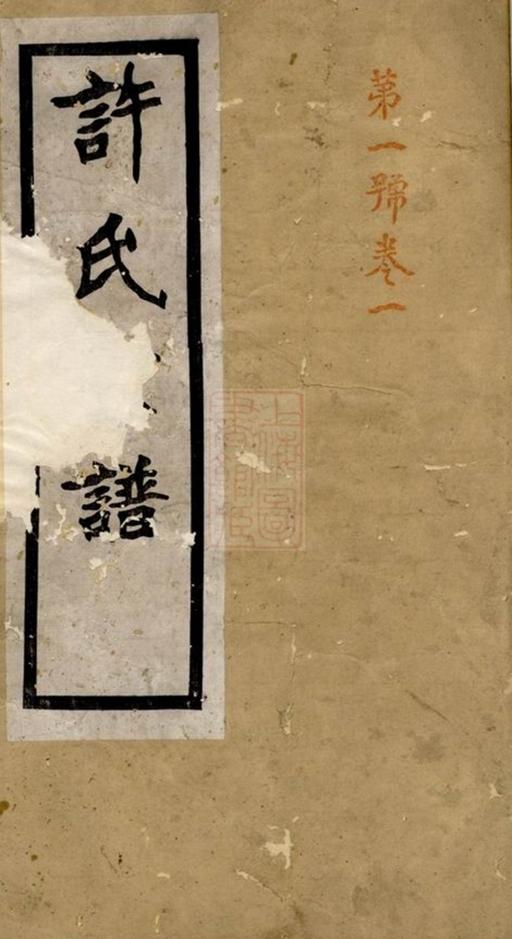 第一號卷一
許氏譜
上海圖書館藏